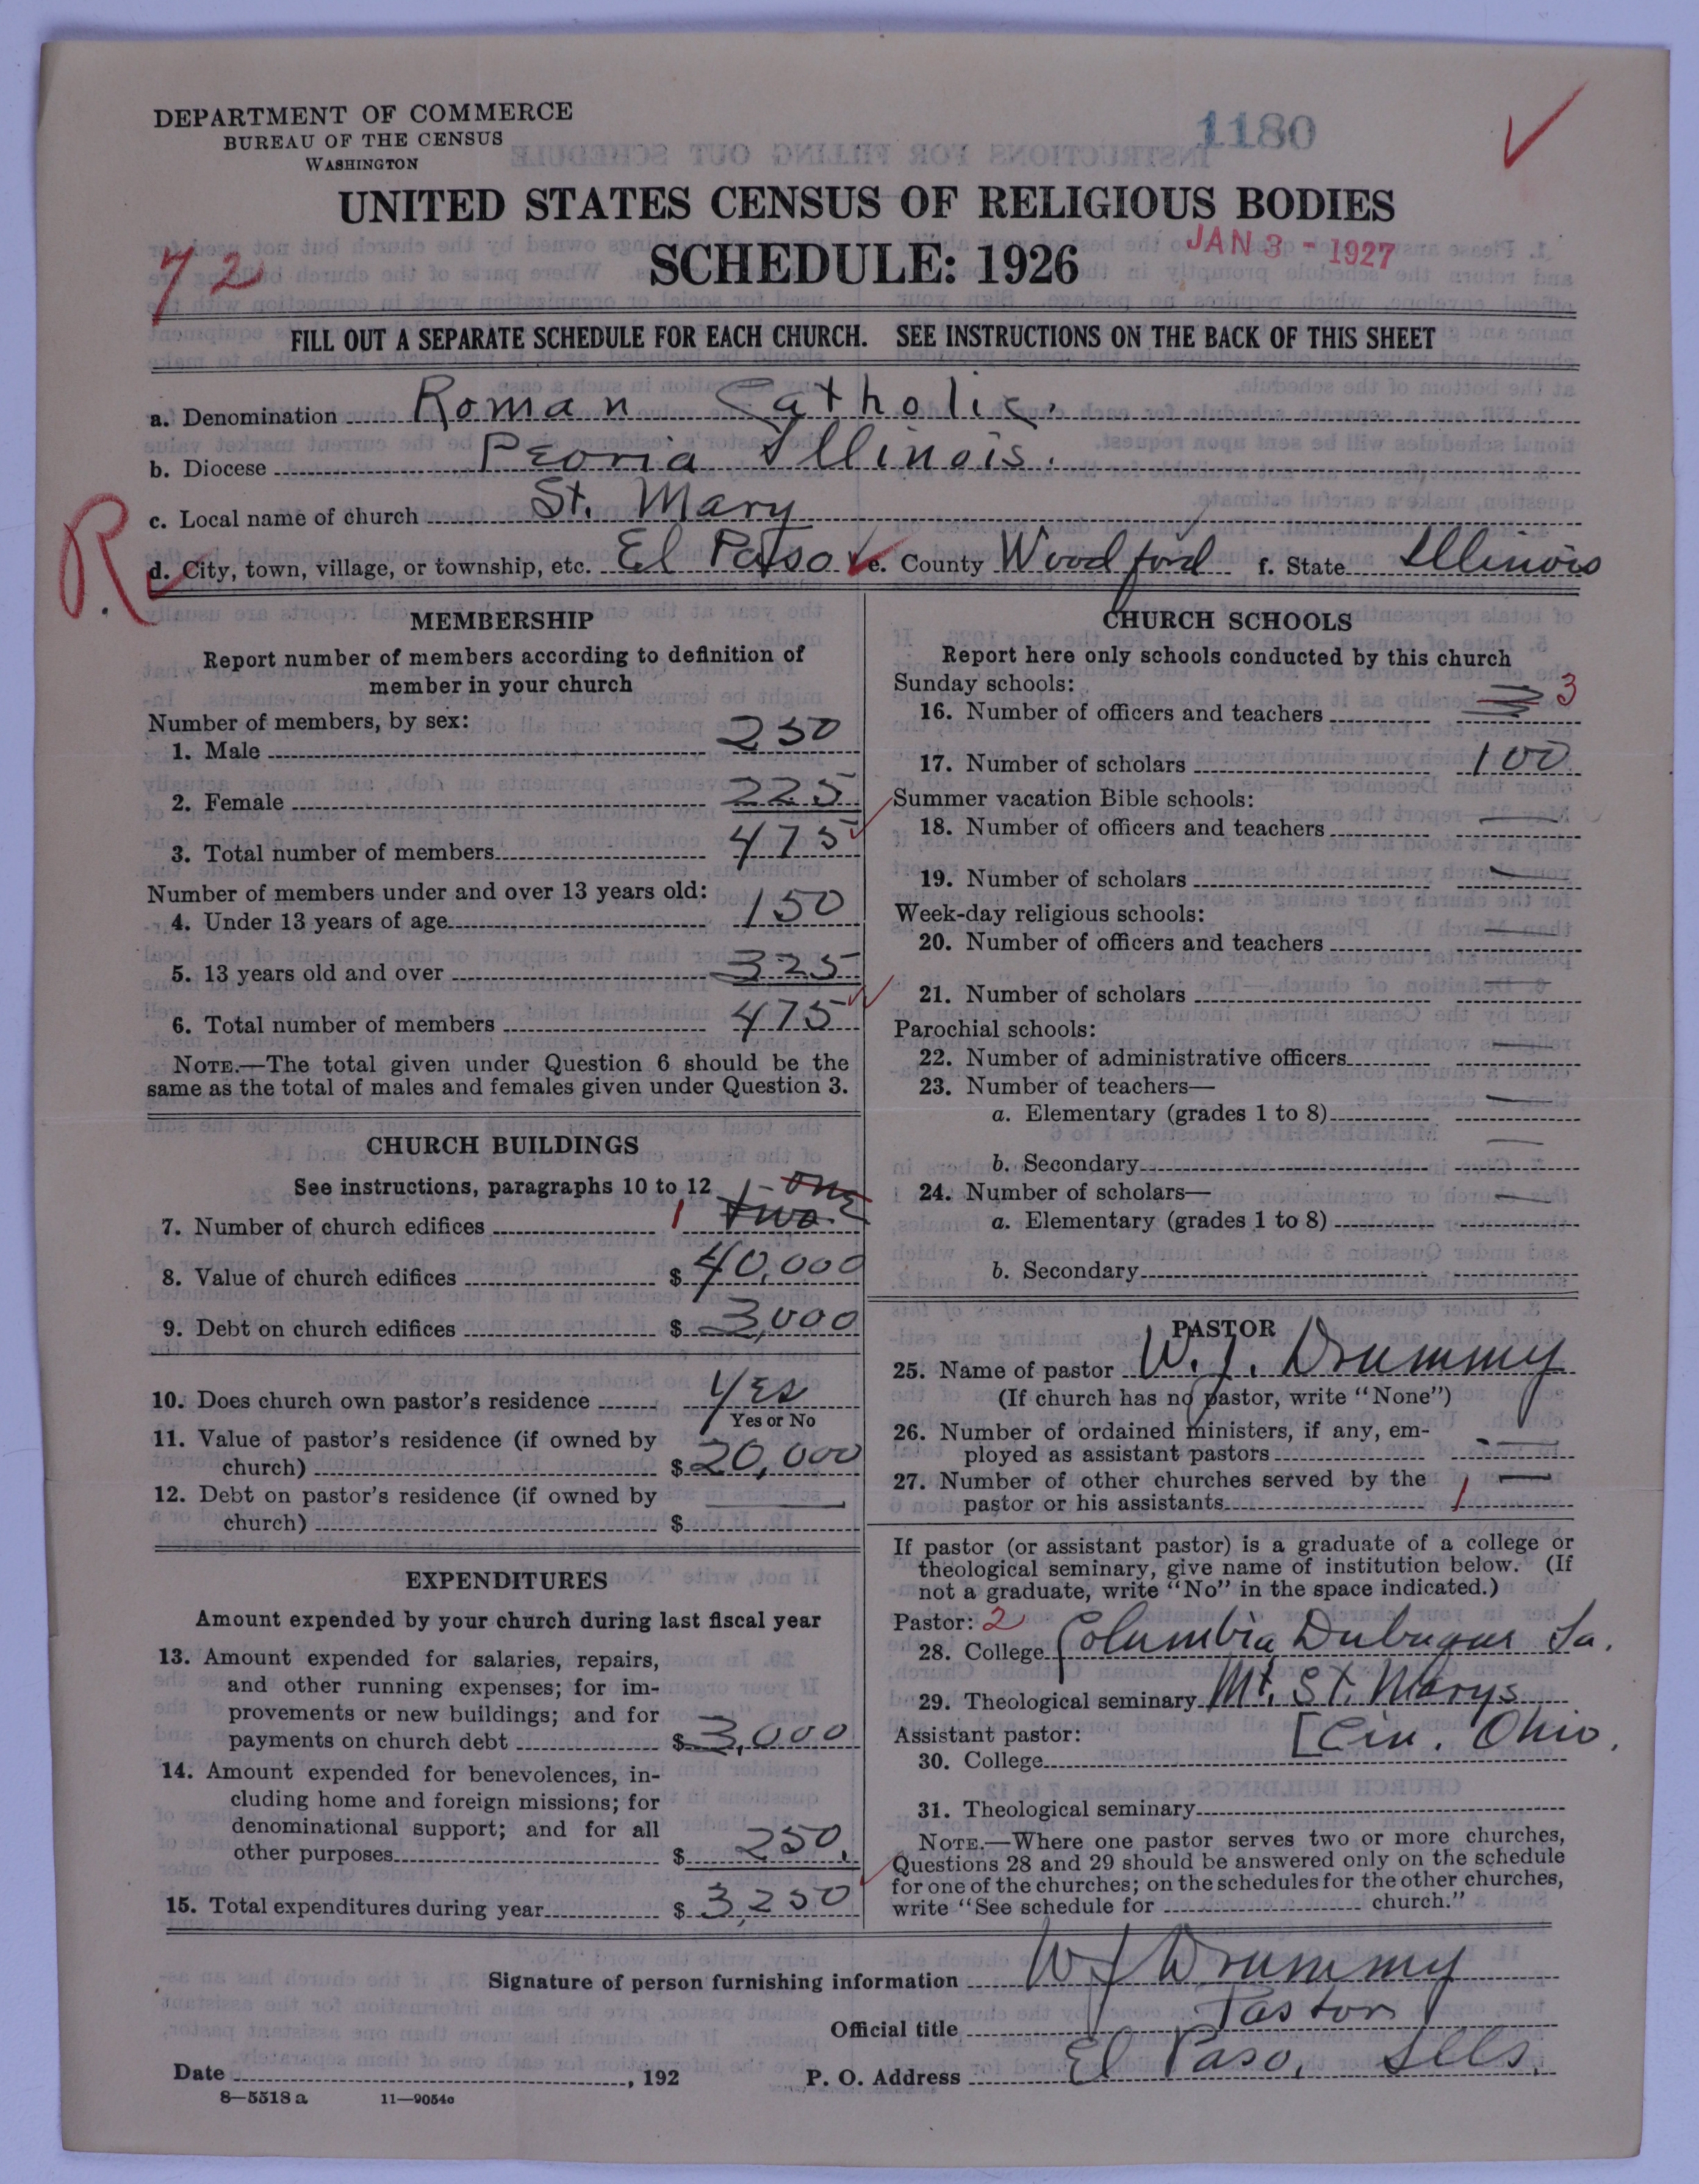 DEPARTMENT OF COMMERCE
BUREAU OF THE CENSUS
WASHINGTON
1180
UNITED STATES CENSUS OF RELIGIOUS BODIES
SCHEDULE: 1926
JAN 3 - 1927
72
FILL OUT A SEPARATE SCHEDULE FOR EACH CHURCH. SEE INSTRUCTIONS ON THE BACK OF THIS SHEET
a. Denomination Roman Catholic.
b. Diocese Peoria Illinois.
c. Local name of church St. Mary
R
d. City, town, village, or township, etc. El Paso e. County Woodford f. State Illinois
MEMBERSHIP
Report number of members according to definition of
member in your church
Number of members, by sex:
1. Male 250
2. Female 225
3. Total number of members 475
Number of members under and over 13 years old:
4. Under 13 years of age 150
5. 13 years old and over 325
6. Total number of members 475
NOTE.—The total given under Question 6 should be the
same as the total of males and females given under Question 3.
CHURCH BUILDINGS
See instructions, paragraphs 10 to 12 1- one
7. Number of church edifices 1 two
8. Value of church edifices $ 40,000
9. Debt on church edifices $ 3,000
10. Does church own pastor's residence Yes
Yes or No
11. Value of pastor's residence (if owned by
church) $ 20,000
12. Debt on pastor's residence (if owned by
church) $ —
EXPENDITURES
Amount expended by your church during last fiscal year
13. Amount expended for salaries, repairs,
and other running expenses; for im-
provements or new buildings; and for
payments on church debt $ 3,000
14. Amount expended for benevolences, in-
cluding home and foreign missions; for
denominational support; and for all
other purposes $ 250.
15. Total expenditures during year $ 3,250
CHURCH SCHOOLS
Report here only schools conducted by this church
Sunday schools:
16. Number of officers and teachers 3
17. Number of scholars 100
Summer vacation Bible schools:
18. Number of officers and teachers —
19. Number of scholars —
Week-day religious schools:
20. Number of officers and teachers —
21. Number of scholars —
Parochial schools:
22. Number of administrative officers —
23. Number of teachers—
a. Elementary (grades 1 to 8) —
b. Secondary —
24. Number of scholars— —
a. Elementary (grades 1 to 8)
b. Secondary
PASTOR
25. Name of pastor W. J. Drummy
(If church has no pastor, write "None")
26. Number of ordained ministers, if any, em-
ployed as assistant pastors —
27. Number of other churches served by the
pastor or his assistants 1 —
If pastor (or assistant pastor) is a graduate of a college or
theological seminary, give name of institution below. (If
not a graduate, write "No" in the space indicated.)
Pastor: 2
28. College Columbia Dubuque Ia.
29. Theological seminary Mt. St. Marys
Assistant pastor: [Cin. Ohio.
30. College
31. Theological seminary
NOTE.—Where one pastor serves two or more churches,
Questions 28 and 29 should be answered only on the schedule
for one of the churches; on the schedules for the other churches,
write "See schedule for church."
Signature of person furnishing information W J Drummy
Official title Pastor
Date , 192 P. O. Address El Paso, Ills.
8—5518 a 11—9054